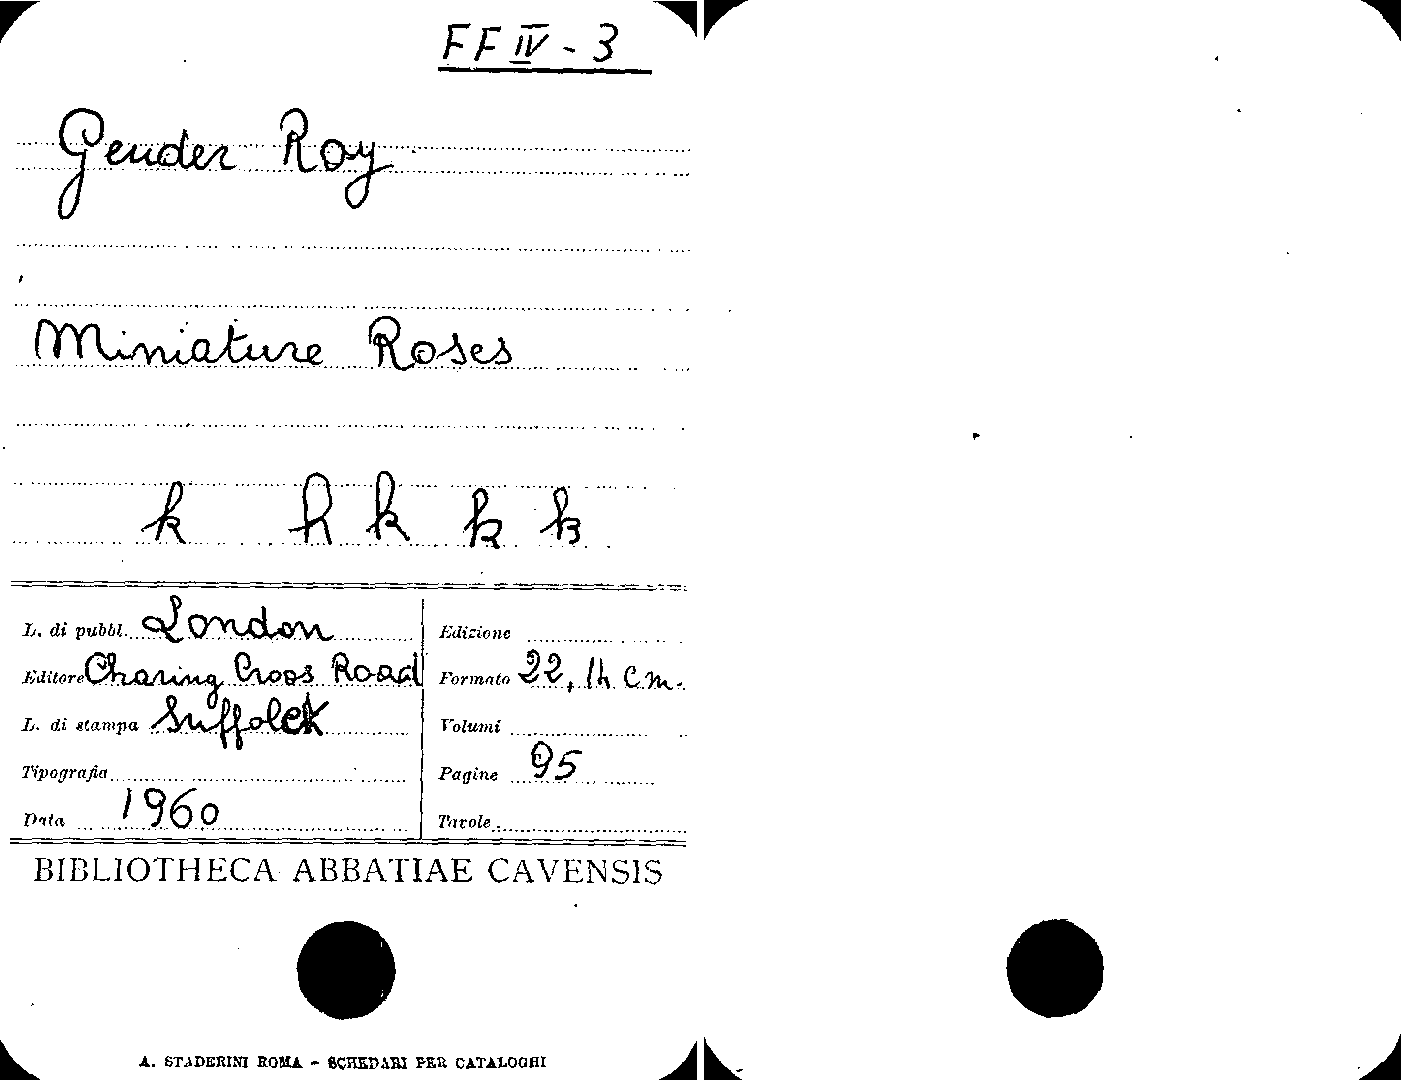 FF IV - 3
Gender Roy
Miniature Roses
k h k k k
L. di pubbl. London
Editore Charing Croos Road
L. di stampa Suffolck
Tipografia
Data 1960
Edizione
Formato 22, 14 cm.
Volumi
Pagine 95
Tavole
BIBLIOTHECA ABBATIAE CAVENSIS
A. STADERINI ROMA - SCHEDARI PER CATALOGHI